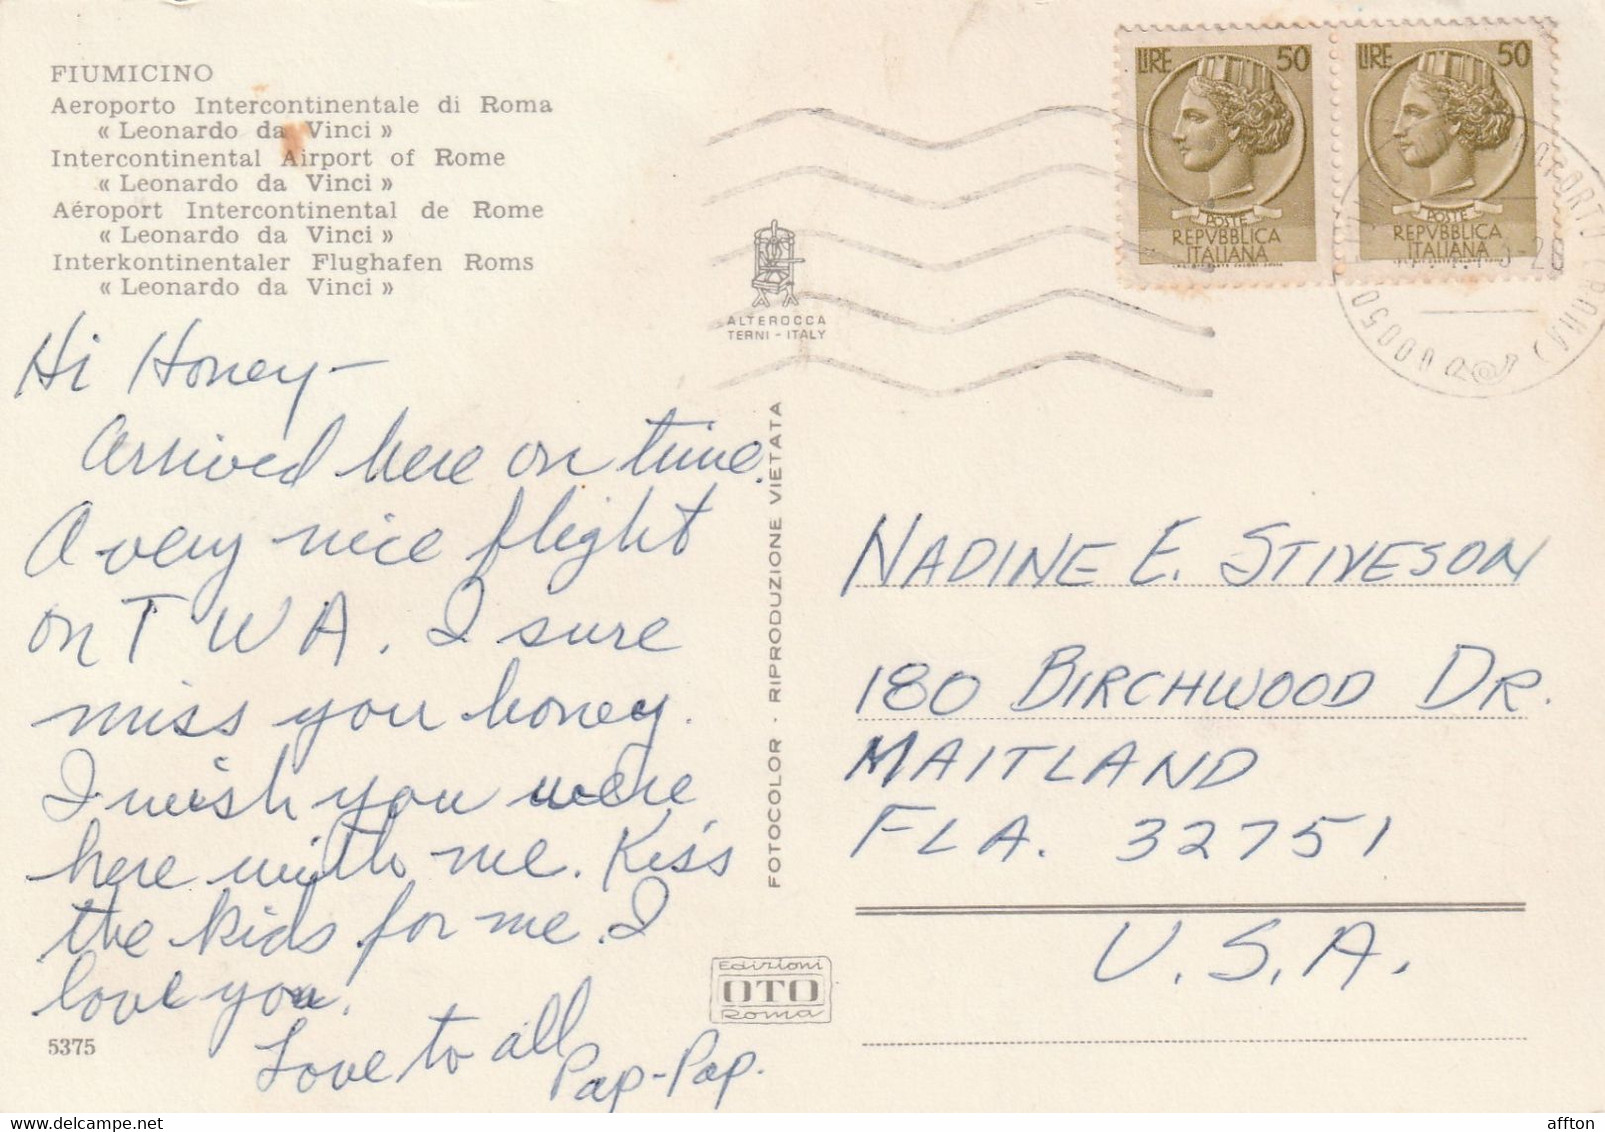 FIUMICINO
Aeroporto Intercontinentale di Roma
« Leonardo da Vinci »
Intercontinental Airport of Rome
« Leonardo da Vinci »
Aéroport Intercontinental de Rome
« Leonardo da Vinci »
Interkontinentaler Flughafen Roms
« Leonardo da Vinci »
Hi Honey-
Arrived here on time.
A very nice flight
on TWA. I sure
miss you honey.
I wish you were
here with me. Kiss
the kids for me. I
love you.
Love to all
Pap-Pap.
5375
ALTEROCCA
TERNI - ITALY
FOTOCOLOR - RIPRODUZIONE VIETATA
Edizioni
OTO
Roma
LIRE 50
POSTE
REPVBBLICA
ITALIANA
LIRE 50
POSTE
REPVBBLICA
ITALIANA
00050
NADINE E. STIVESON
180 BIRCHWOOD DR.
MAITLAND
FLA. 32751
U.S.A.
affton